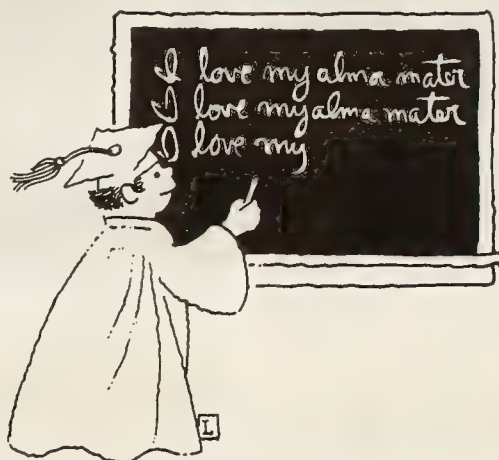 I love my alma mater
I love my alma mater
I love my
L